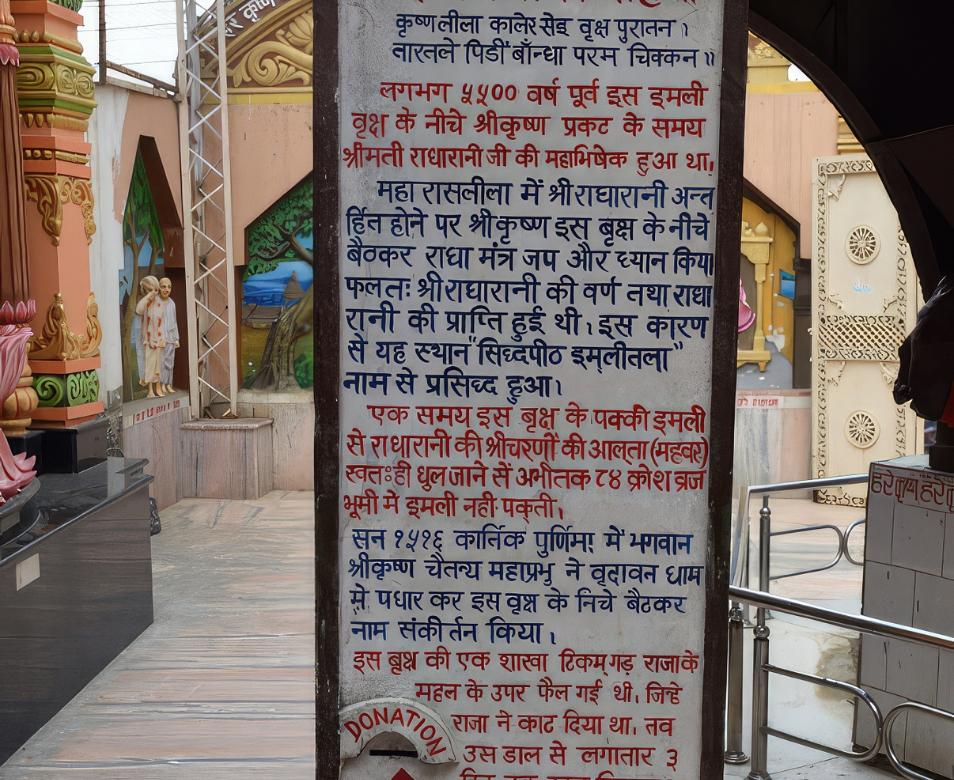 कृष्णलीला कालेर सेइ वृक्ष पुरातन।
तारतले पिडीँ बाँन्धा परम चिक्कन॥
लगभग ५५०० वर्ष पूर्व इस इमली
वृक्ष के नीचे श्रीकृष्ण प्रकट के समय
श्रीमती राधारानी जी की महाभिषेक हुआ था।
महा रासलीला में श्रीराधारानी अन्त
र्हित होने पर श्रीकृष्ण इस बृक्ष के नीचे
बैठकर राधा मंत्र जप और ध्यान किया
फलतः श्रीराधारानी की वर्ण तथा राधा
रानी की प्राप्ति हुई थी। इस कारण
से यह स्थान "सिध्दपीठ इम्लीतला"
नाम से प्रसिध्द हुआ।
एक समय इस बृक्ष के पक्की इमली
से राधारानी की श्रीचरणों की आलता (महवर)
स्वतःही धूल जाने सें अभीतक ८४ क्रोश व्रज
भूमी मे इमली नही पक्ती।
सन १५१६ कार्तिक पुर्णिमा में भगवान
श्रीकृष्ण चैतन्य महाप्रभु ने वृदावन धाम
मे पधार कर इस वृक्ष के निचे बैठकर
नाम संकीर्तन किया।
इस बृक्ष की एक शाखा टिकमगड़ राजाके
महल के उपर फैल गई थी। जिन्हे
राजा ने काट दिया था। तव
उस डाल से लगातार ३
DONATION